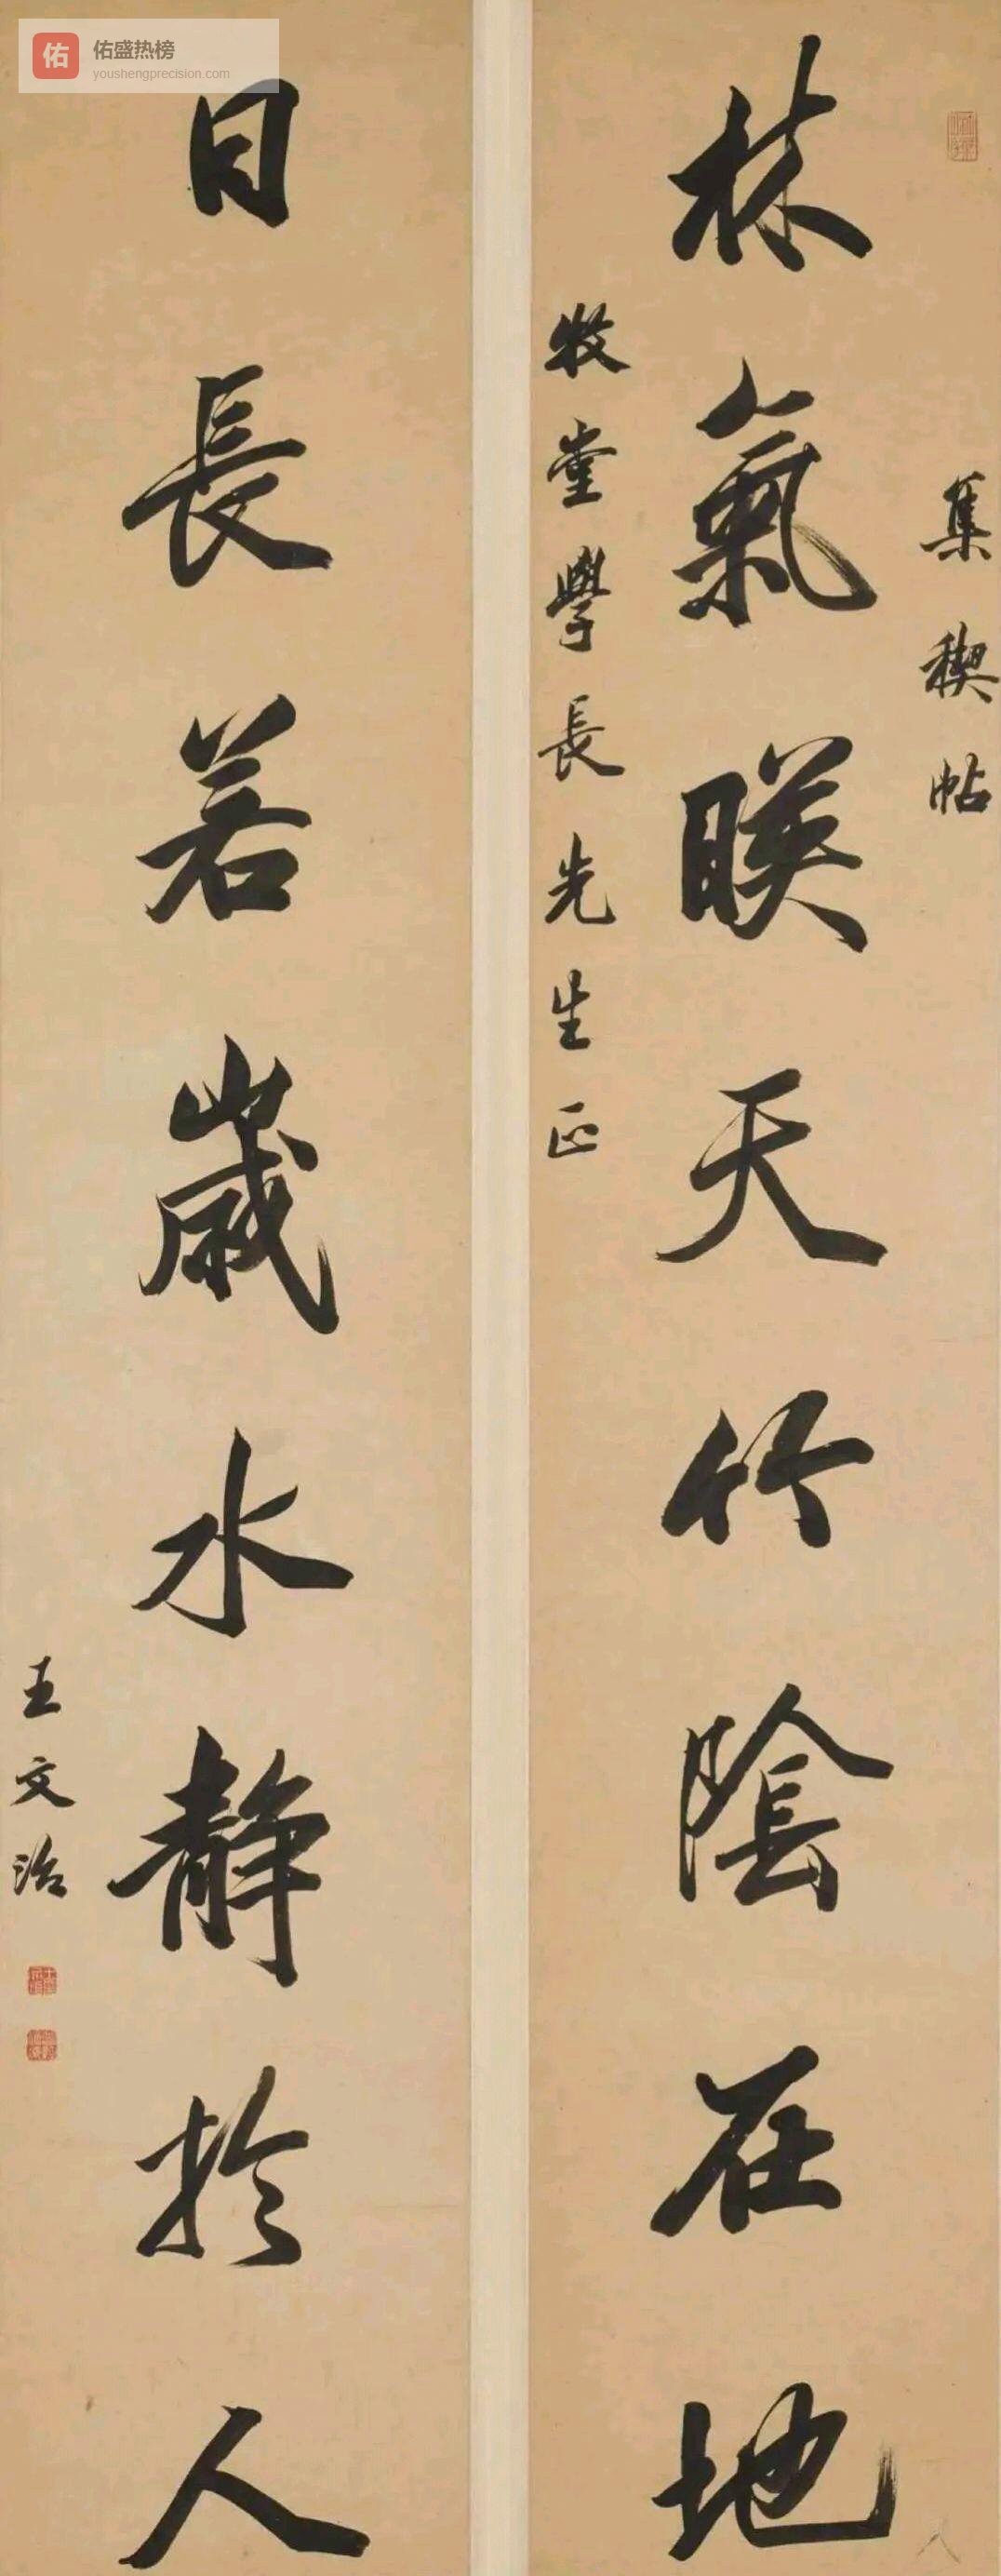 佑
佑盛热榜
youshengprecision.com
集禊帖
林氣暎天竹陰在地
牧堂學長先生正
日長若歲水靜於人
王文治